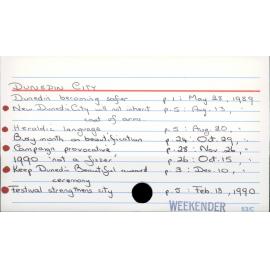 DUNEDIN CITY
Dunedin becoming safer p.1: May 28, 1989
New Dunedin City will not inherit p.5: Aug. 13, "
coat of arms
Heraldic language p.5: Aug. 20, "
Busy month on beautification p.24: Oct. 29, "
Campaign provocative p.28: Nov. 26, "
1990 'not a fizzer' p.26: Oct. 15, "
Keep Dunedin Beautiful award p.3: Dec. 10, "
ceremony
Festival strengthens city p.5: Feb. 18, 1990
WEEKENDER